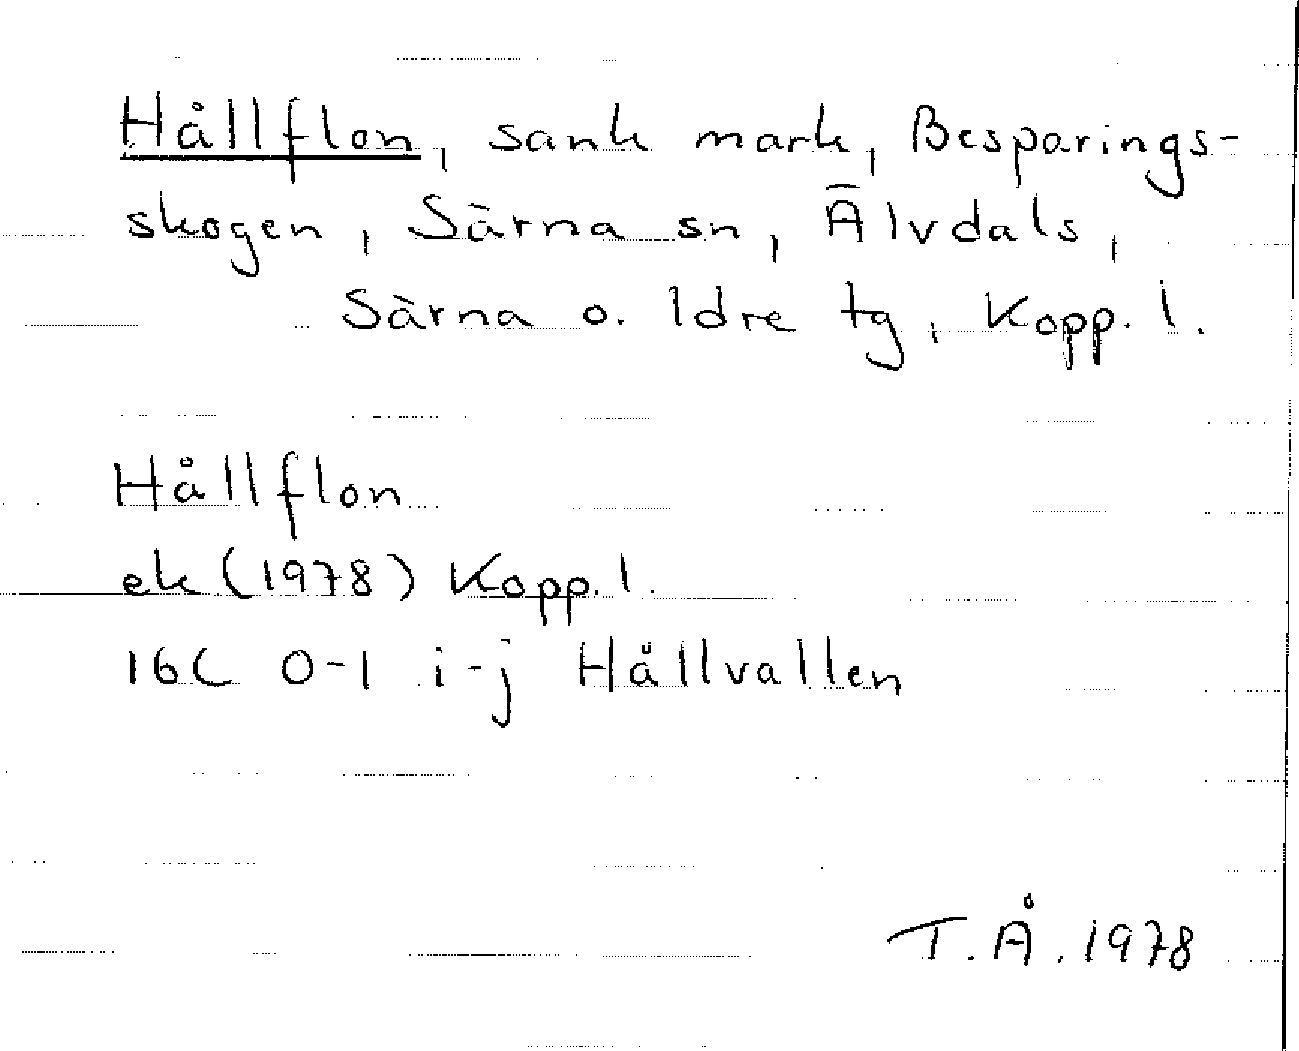 Hållflon, sank mark, Besparings-
skogen, Särna sn, Älvdals,
Särna o. Idre tg, Kopp. l.
Hållflon
ek (1978) Kopp. l.
16C 0-1 i-j Hållvallen
T. Å. 1978